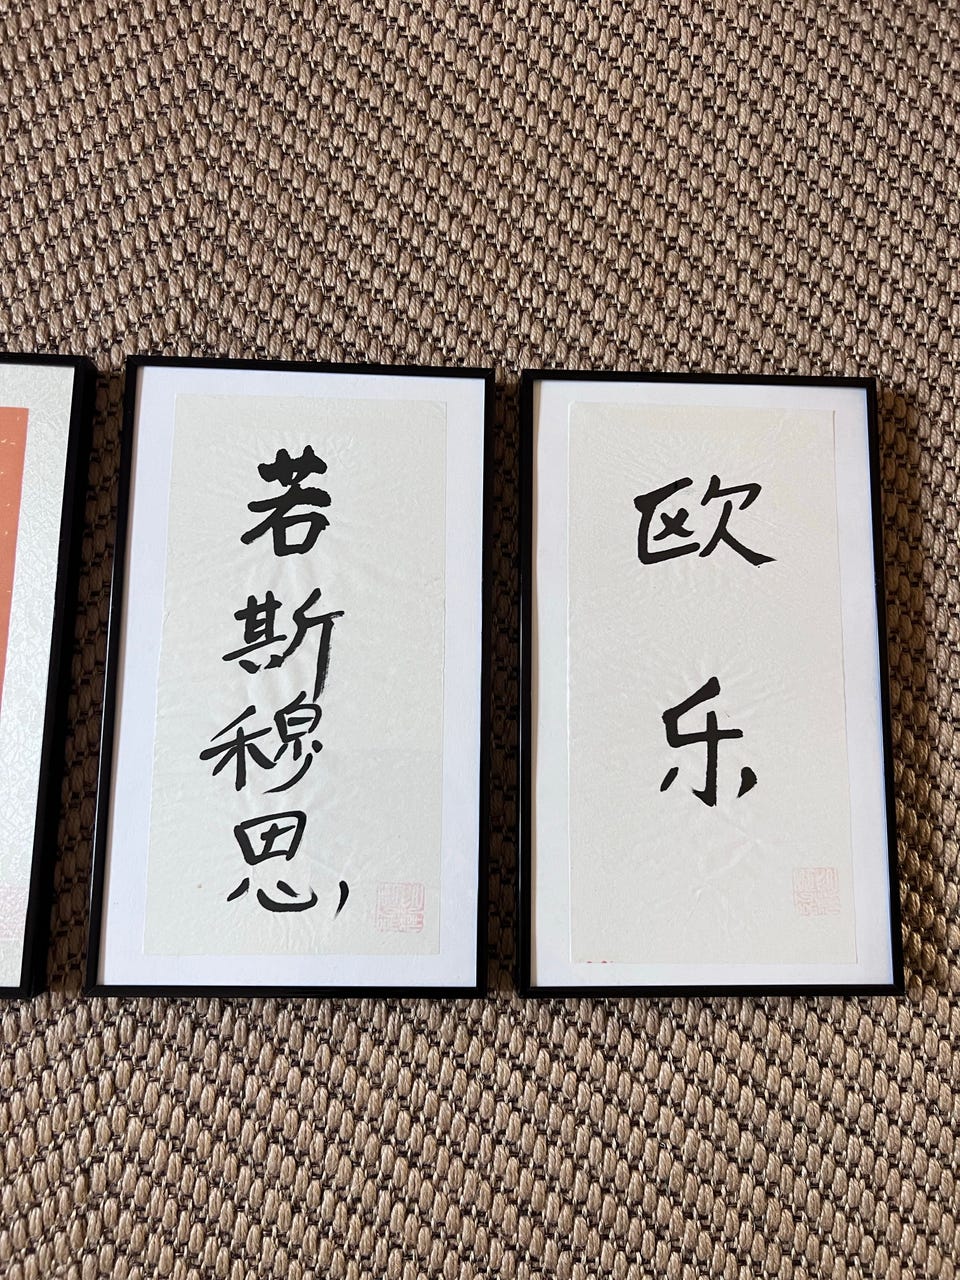 若斯穆恩
欧乐